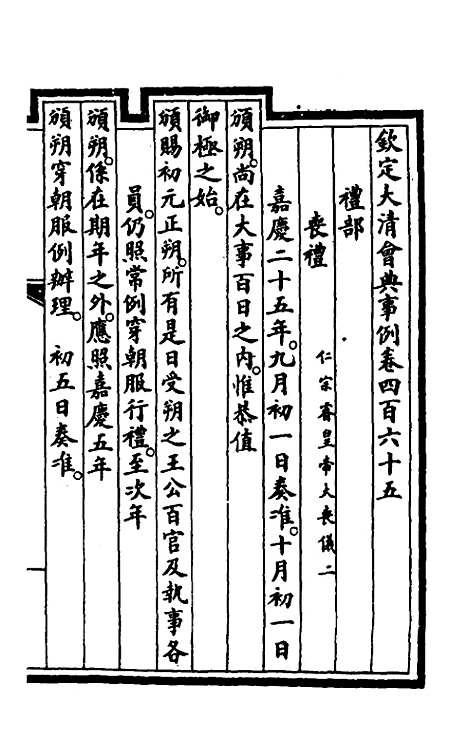 欽定大清會典事例卷四百六十五
禮部
喪禮 仁宗睿皇帝大喪儀二
嘉慶二十五年。九月初一日奏准。十月初一日
頒朔。尚在大事百日之內。惟恭值
御極之始。
頒賜初元正朔。所有是日受朔之王公百官及執事各
員。仍照常例穿朝服行禮。至次年
頒朔。係在期年之外。應照嘉慶五年
頒朔穿朝服例辦理。 初五日奏准。